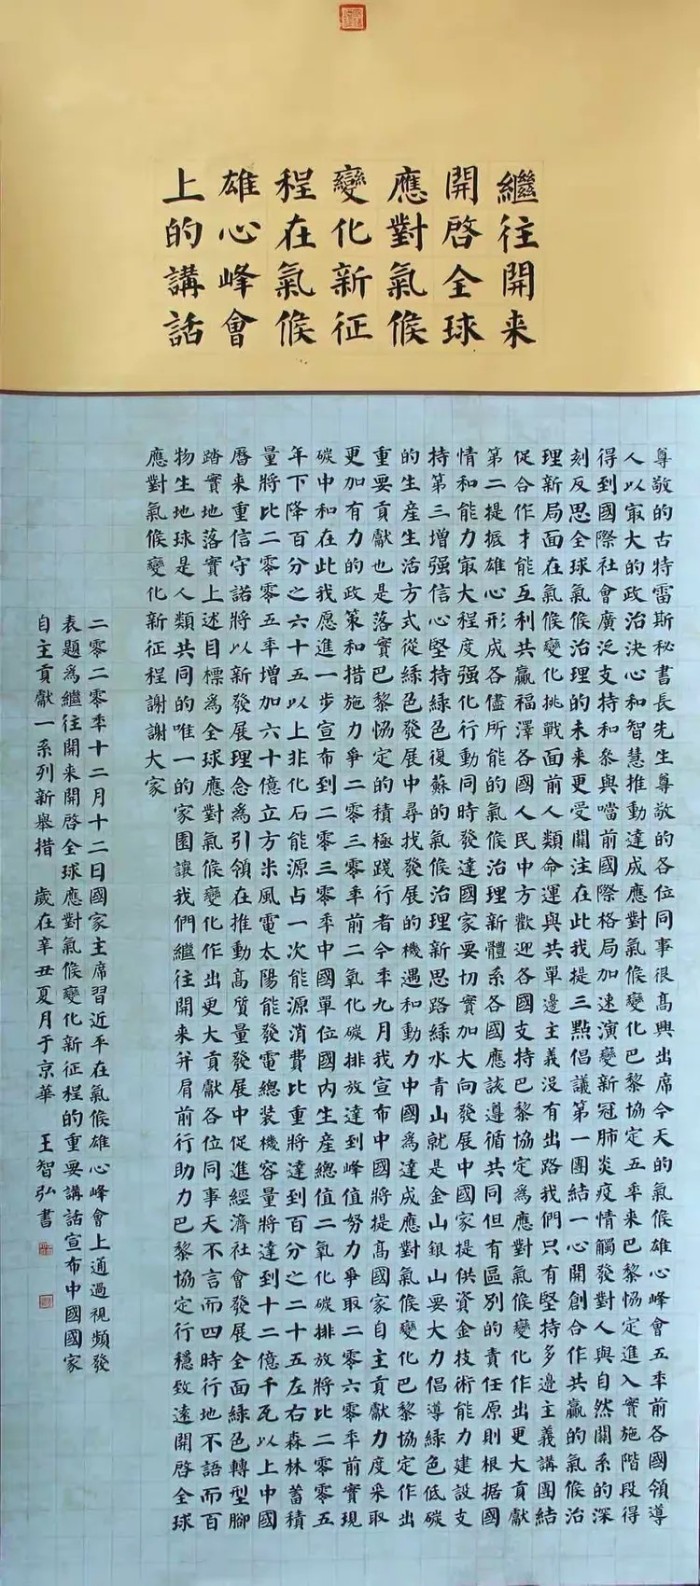 繼往開来
開啓全球
應對氣候
變化新征
程在氣候
雄心峰會
上的講話
尊敬的古特雷斯秘書長先生尊敬的各位同事很髙興出席今天的氣候雄心峰會五年前各國領導
人以㝡大的政治决心和智慧推動達成應對氣候變化巴黎協定五年来巴黎協定進入實施階段得
得到國際社會廣泛支持和參與當前國際格局加速演變新冠肺炎疫情觸發對人與自然關系的深
刻反思全球氣候治理的未来更受關注在此我提三點倡議第一團結一心開創合作共贏的氣候治
理新局面在氣候變化挑戰面前人類命運與共單邊主義没有出路我們只有堅持多邊主義講團結
促合作才能互利共贏福澤各國人民中方歡迎各國支持巴黎協定為應對氣候變化作出更大貢獻
第二提振雄心形成各盡所能的氣候治理新體系各國應該遵循共同但有區别的責任原則根据國
情和能力㝡大程度强化行動同時發達國家要切實加大向發展中國家提供資金技術能力建設支
持第三增强信心堅持綠色復蘇的氣候治理新思路綠水青山就是金山銀山要大力倡導綠色低碳
的生産生活方式從綠色發展中尋找發展的機遇和動力中國為達成應對氣候變化巴黎協定作出
重要貢獻也是落實巴黎協定的積極踐行者今年九月我宣布中國將提髙國家自主貢獻力度采取
更加有力的政策和措施力爭二零三零年前二氧化碳排放達到峰值努力爭取二零六零年前實現
碳中和在此我愿進一步宣布到二零三零年中國單位國内生産總值二氧化碳排放將比二零零五
年下降百分之六十五以上非化石能源占一次能源消費比重將達到百分之二十五左右森林蓄積
量將比二零零五年增加六十億立方米風電太陽能發電總装機容量將達到十二億千瓦以上中國
曆来重信守諾將以新發展理念為引領在推動髙質量發展中促進經濟社會發展全面綠色轉型腳
踏實地落實上述目標為全球應對氣候變化作出更大貢獻各位同事天不言而四時行地不語而百
物生地球是人類共同的唯一的家園讓我們繼往開来并肩前行助力巴黎協定行穩致遠開啓全球
應對氣候變化新征程謝謝大家
二零二零年十二月十二日國家主席習近平在氣候雄心峰會上通過視頻發
表題為繼往開来開啓全球應對氣候變化新征程的重要講話宣布中國國家
自主貢獻一系列新舉措 歲在辛丑夏月于京華 王智弘書